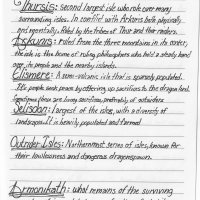 Thursis: second largest isle who rule over many
surrounding isles. In conflict with Arkunis both physically
and mentally. Ruled by the tribes of Thur and their readers.
Arkunis: ruled from the three mountains in its center,
the isle is the home of ruling philosophers who hold a steady hand
over its people and the nearby islands.
Elismere: A semi-volcanic isle that is sparsely populated.
It's people seek power by offering up sacrifices to the dragon god.
sacrifices are living sacrifices, preferably of outsiders
Jelisoon: largest of the isles, with a diversity of
landscapes. It is heavily populated and farmed.
Outrider Isles: Northernmost series of isles, known for
their lawlessness and dangerous dragonspawn.
Armonikath: what remains of the surviving